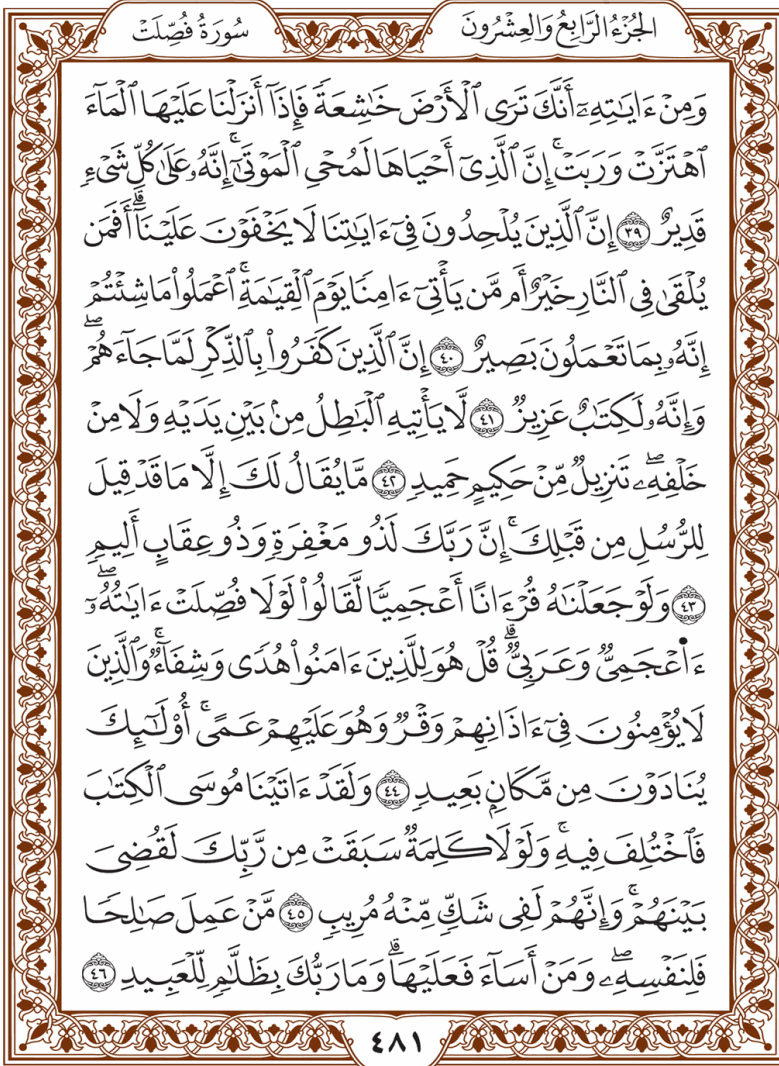 الجُزْءُ الرَّابِعُ وَالعِشْرُونَ
سُورَةُ فُصِّلَتْ
وَمِنْ ءَايَـٰتِهِۦٓ أَنَّكَ تَرَى ٱلْأَرْضَ خَـٰشِعَةً فَإِذَآ أَنزَلْنَا عَلَيْهَا ٱلْمَآءَ
ٱهْتَزَّتْ وَرَبَتْ ۚ إِنَّ ٱلَّذِىٓ أَحْيَاهَا لَمُحْىِ ٱلْمَوْتَىٰٓ ۚ إِنَّهُۥ عَلَىٰ كُلِّ شَىْءٍ
قَدِيرٌ ٣٩ إِنَّ ٱلَّذِينَ يُلْحِدُونَ فِىٓ ءَايَـٰتِنَا لَا يَخْفَوْنَ عَلَيْنَآ ۗ أَفَمَن
يُلْقَىٰ فِى ٱلنَّارِ خَيْرٌ أَم مَّن يَأْتِىٓ ءَامِنًا يَوْمَ ٱلْقِيَـٰمَةِ ۚ ٱعْمَلُوا۟ مَا شِئْتُمْ
إِنَّهُۥ بِمَا تَعْمَلُونَ بَصِيرٌ ٤٠ إِنَّ ٱلَّذِينَ كَفَرُوا۟ بِٱلذِّكْرِ لَمَّا جَآءَهُمْ ۖ
وَإِنَّهُۥ لَكِتَـٰبٌ عَزِيزٌ ٤١ لَّا يَأْتِيهِ ٱلْبَـٰطِلُ مِنۢ بَيْنِ يَدَيْهِ وَلَا مِنْ
خَلْفِهِۦ ۖ تَنزِيلٌ مِّنْ حَكِيمٍ حَمِيدٍ ٤٢ مَّا يُقَالُ لَكَ إِلَّا مَا قَدْ قِيلَ
لِلرُّسُلِ مِن قَبْلِكَ ۚ إِنَّ رَبَّكَ لَذُو مَغْفِرَةٍ وَذُو عِقَابٍ أَلِيمٍ
٤٣ وَلَوْ جَعَلْنَـٰهُ قُرْءَانًا أَعْجَمِيًّا لَّقَالُوا۟ لَوْلَا فُصِّلَتْ ءَايَـٰتُهُۥٓ ۖ
ءَا۬عْجَمِىٌّ وَعَرَبِىٌّ ۗ قُلْ هُوَ لِلَّذِينَ ءَامَنُوا۟ هُدًى وَشِفَآءٌ ۖ وَٱلَّذِينَ
لَا يُؤْمِنُونَ فِىٓ ءَاذَانِهِمْ وَقْرٌ وَهُوَ عَلَيْهِمْ عَمًى ۚ أُو۟لَـٰٓئِكَ
يُنَادَوْنَ مِن مَّكَانٍۭ بَعِيدٍ ٤٤ وَلَقَدْ ءَاتَيْنَا مُوسَى ٱلْكِتَـٰبَ
فَٱخْتُلِفَ فِيهِ ۚ وَلَوْلَا كَلِمَةٌ سَبَقَتْ مِن رَّبِّكَ لَقُضِىَ
بَيْنَهُمْ ۚ وَإِنَّهُمْ لَفِى شَكٍّ مِّنْهُ مُرِيبٍ ٤٥ مَّنْ عَمِلَ صَـٰلِحًا
فَلِنَفْسِهِۦ ۖ وَمَنْ أَسَآءَ فَعَلَيْهَا ۗ وَمَا رَبُّكَ بِظَلَّـٰمٍ لِّلْعَبِيدِ ٤٦
٤٨١